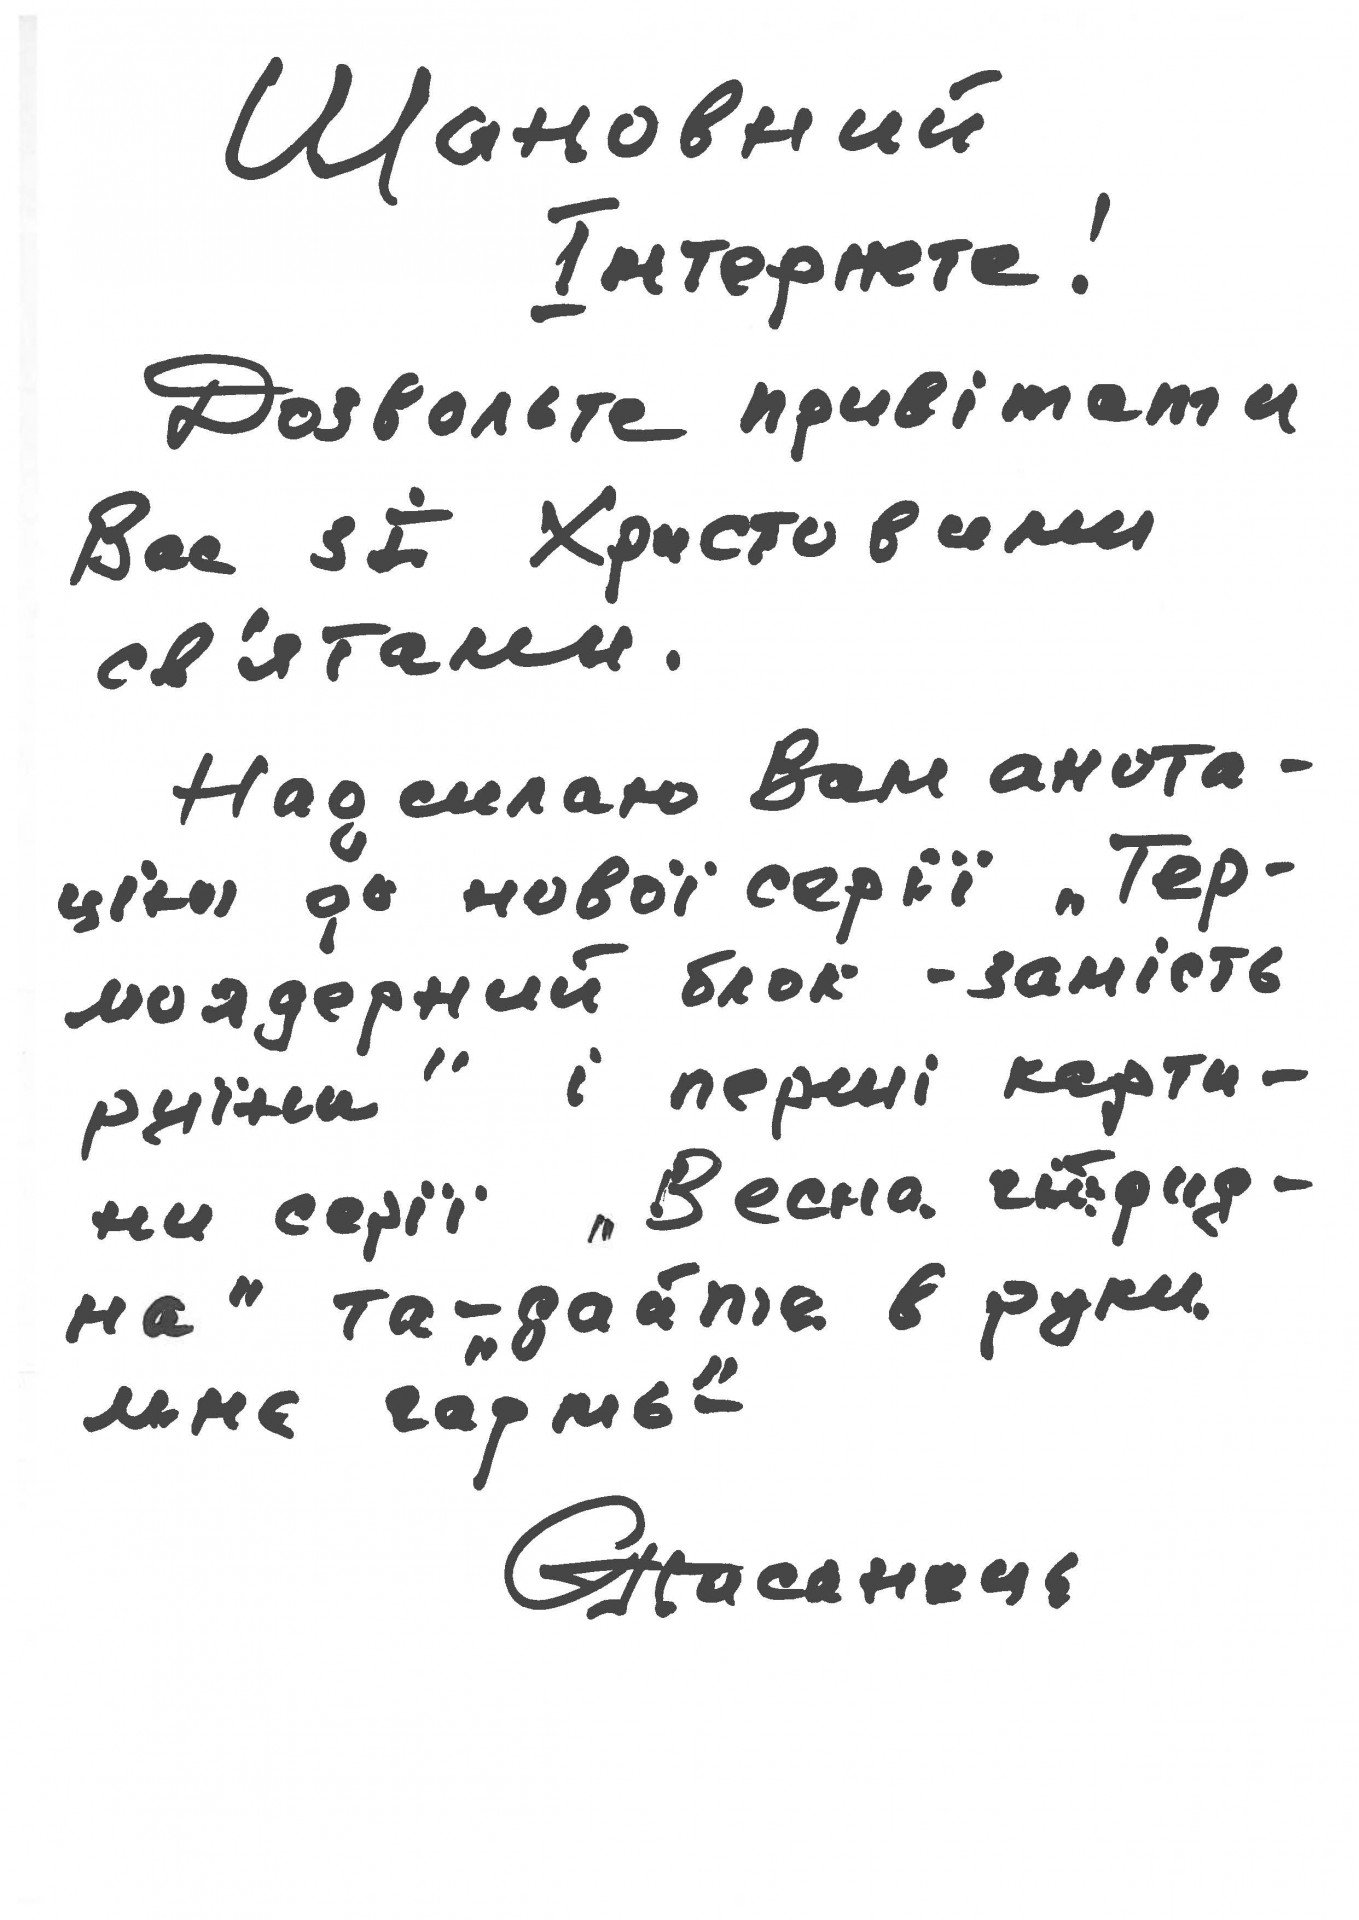 Шановний
Інтернете!
Дозвольте привітати
Вас зі Христовими
св'ятами.
Надсилаю Вам анота-
цію до нової серії „Тер-
моядерний блок - замість
руїни" і перші карти-
ни серії „Весна.
на" та - „дайте в руки
мнє гармь" -